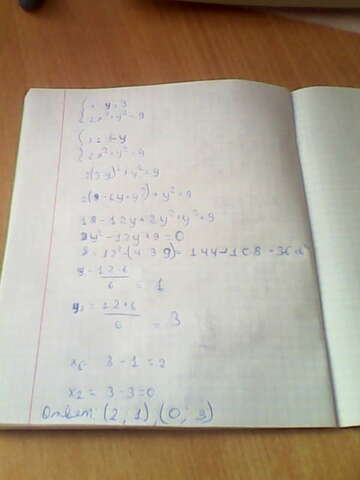 { x + y = 3
2x² + y² = 9
{ x = 3 - y
2x² + y² = 9
2(3-y)² + y² = 9
2(9 - 6y + y²) + y² = 9
18 - 12y + 2y² + y² = 9
3y² - 12y + 9 = 0
= 12² - (4·3·9) = 144 - 108 = 36
y = 12-6 / 6 = 1
y₂ = 12+6 / 6 = 3
3 - 1 = 2
x₂ = 3 - 3 = 0
Ответ: (2; 1), (0; 3)